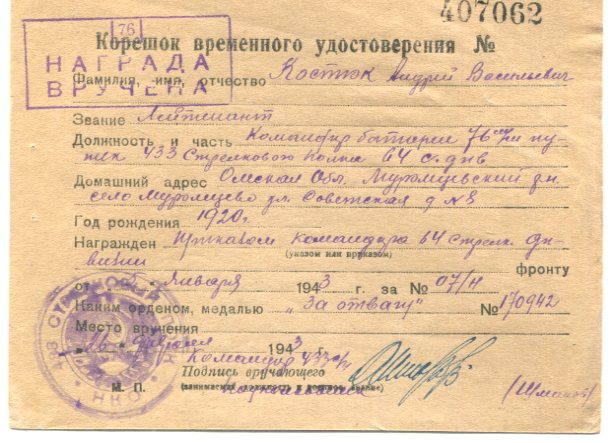 407062
76
Корешок временного удостоверения №
НАГРАДА
ВРУЧЕНА
Фамилия, имя, отчество Костюк Андрей Васильевич
Звание Лейтенант
Должность и часть Командир батареи 76 мм пу-
шек 433 Стрелкового полка 64 с. див
Домашний адрес Омская Обл. Муромцевский рн
село Муромцево ул. Советская д № 8
Год рождения 1920 г.
Награжден Приказом командира 64 стрелк. ди-
визии
(указом или приказом)
фронту
от Января 1943 г. за № 07/н
Каким орденом, медалью „За отвагу" № 170942
Место вручения
„16" февраля 1943 г.
Командир 433 сп
Подпись вручающего
М. П. (занимаемая должность и воинское звание)
433 СТРЕЛКОВЫЙ
НКО